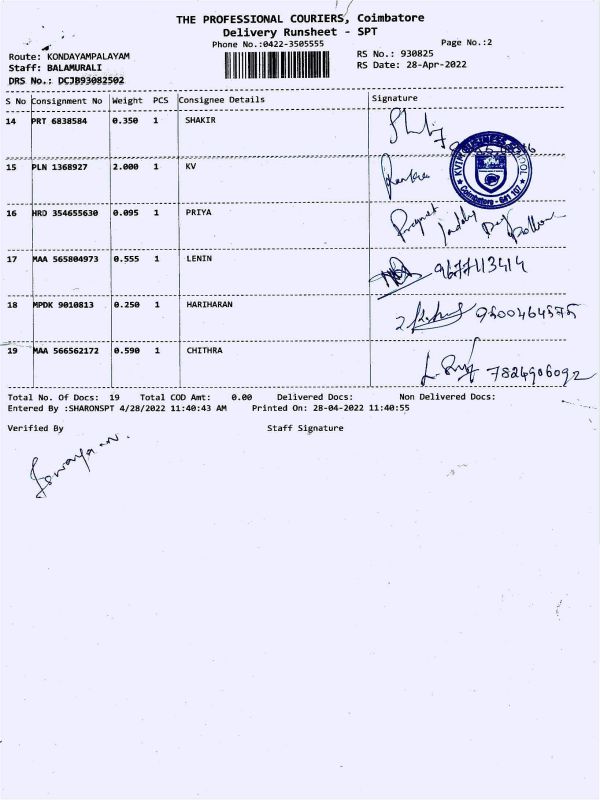 THE PROFESSIONAL COURIERS, Coimbatore
Delivery Runsheet - SPT
Phone No.:0422-3505555
Page No.:2
Route: KONDAYAMPALAYAM
RS No.: 930825
Staff: BALAMURALI
RS Date: 28-Apr-2022
DRS No.: DCJB93082502
S No Consignment No Weight PCS Consignee Details Signature
14 PRT 6838584 0.350 1 SHAKIR
KVIM BUSINESS SCHOOL
Coimbatore - 641 107
15 PLN 1368927 2.000 1 KV
16 HRD 354655630 0.095 1 PRIYA
17 MAA 565804973 0.555 1 LENIN 9677113414
18 MPDK 9010813 0.250 1 HARIHARAN
19 MAA 566562172 0.590 1 CHITHRA 7824906092
Total No. Of Docs: 19 Total COD Amt: 0.00 Delivered Docs: Non Delivered Docs:
Entered By :SHARONSPT 4/28/2022 11:40:43 AM Printed On: 28-04-2022 11:40:55
Verified By Staff Signature